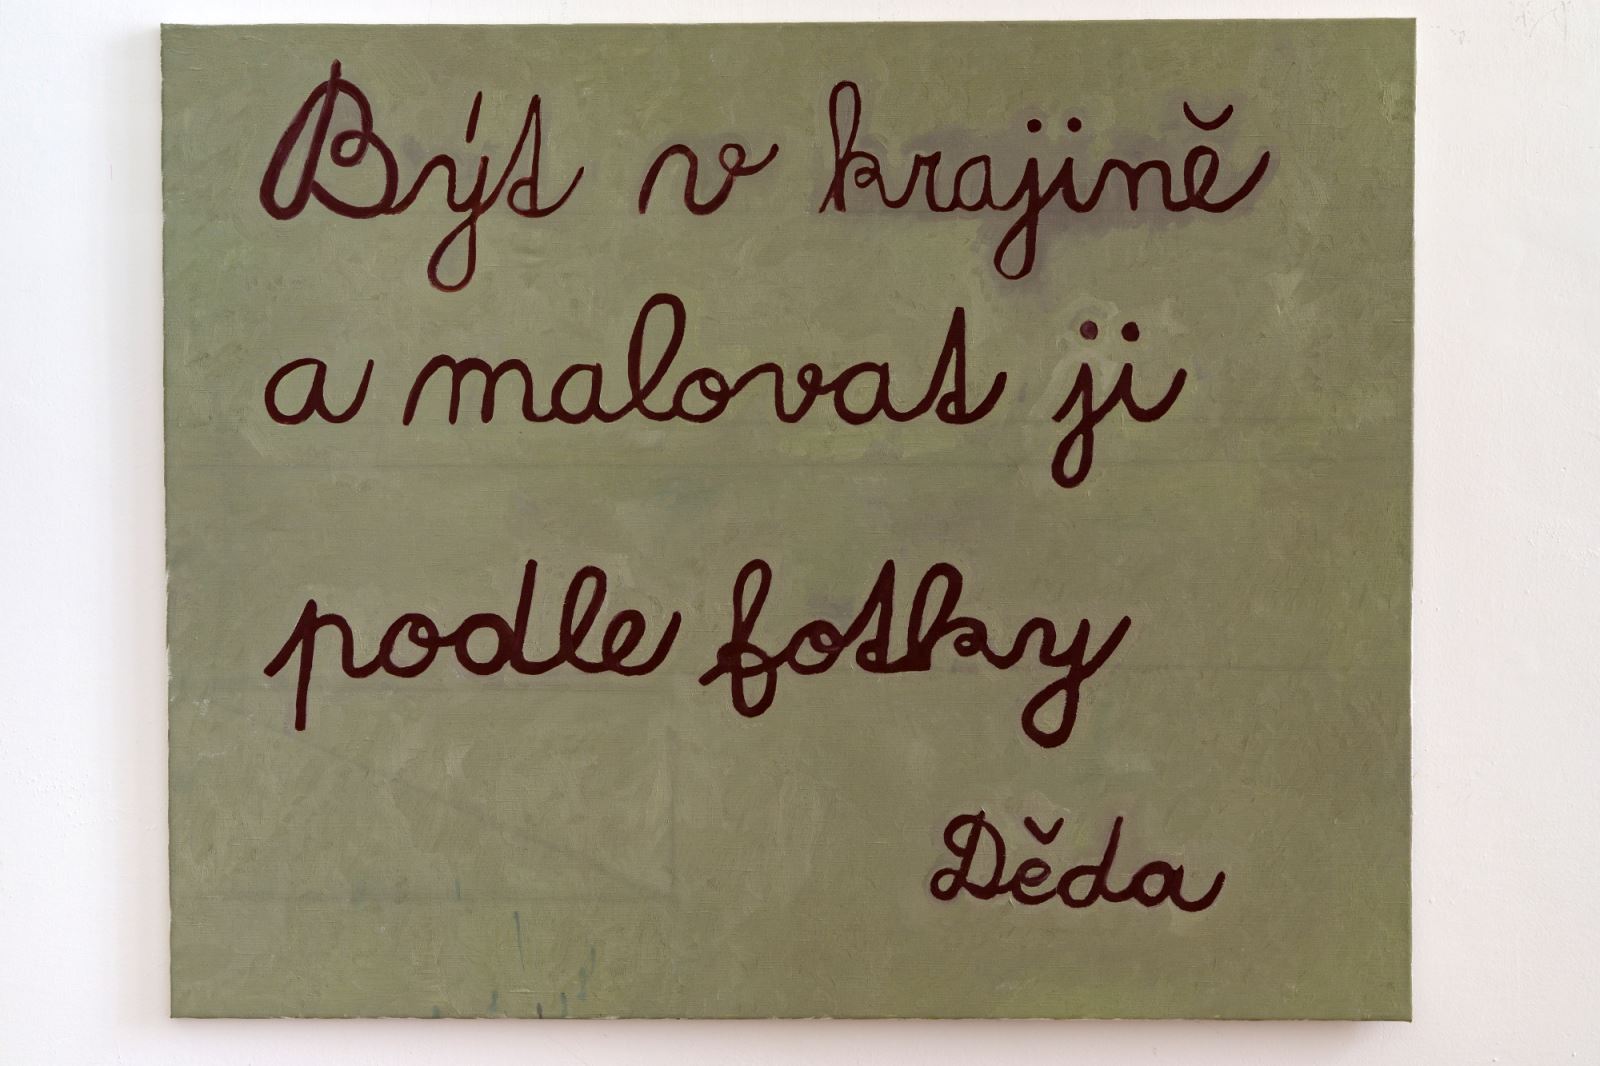 Být v krajině
a malovat ji
podle fotky
Děda